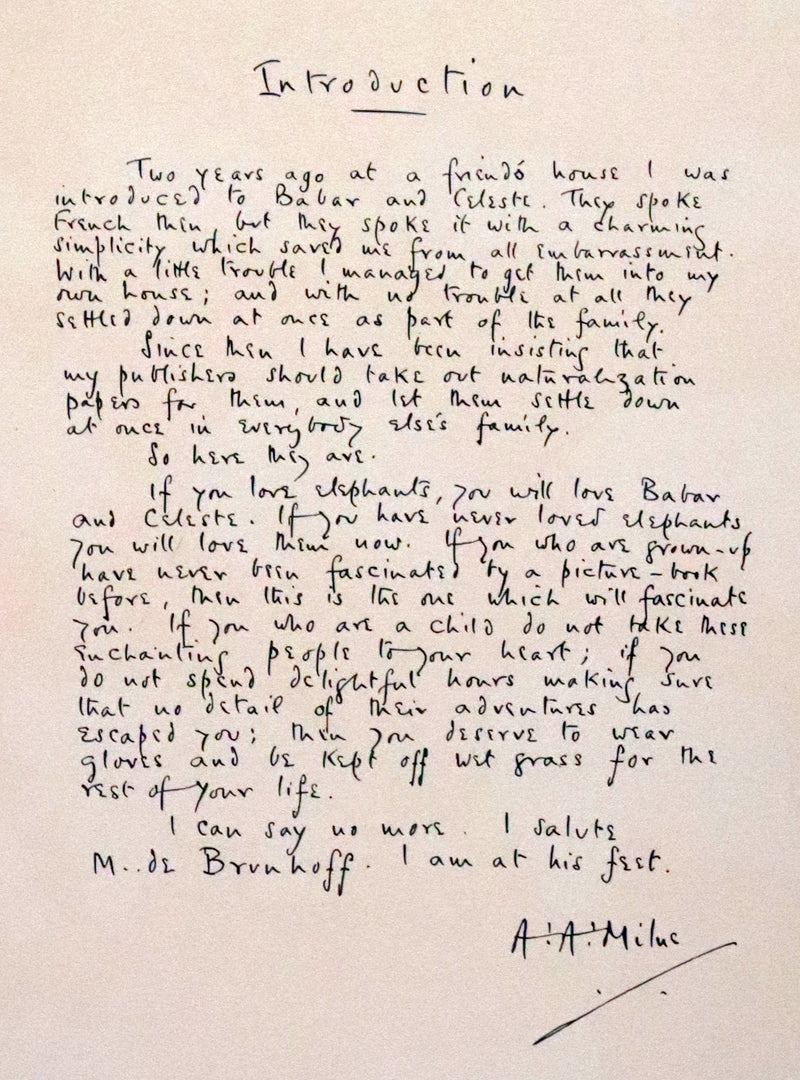 Introduction
Two years ago at a friend's house I was
introduced to Babar and Celeste. They spoke
French then, but they spoke it with a charming
simplicity which saved me from all embarrassment.
With a little trouble I managed to get them into my
own house; and with no trouble at all they
settled down at once as part of the family.
Since then I have been insisting that
my publishers should take out naturalization
papers for them, and let them settle down
at once in everybody else's family.
So here they are.
If you love elephants, you will love Babar
and Celeste. If you have never loved elephants
you will love them now. If you who are grown-up
have never been fascinated by a picture-book
before, then this is the one which will fascinate
you. If you who are a child do not take these
enchanting people to your heart; if you
do not spend delightful hours making sure
that no detail of their adventures has
escaped you; then you deserve to wear
gloves and be kept off wet grass for the
rest of your life.
I can say no more. I salute
M. de Brunhoff. I am at his feet.
A. A. Milne